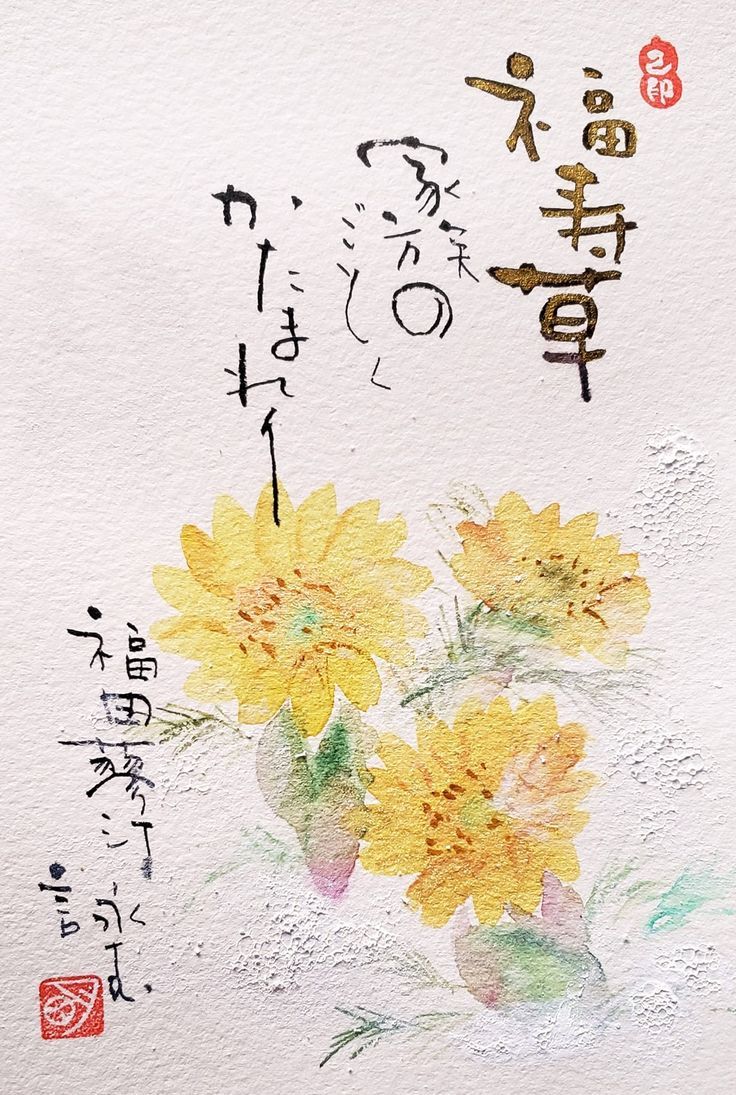 福寿草
家族の
ごとく
かたまれり
福田蓼汀 詠む